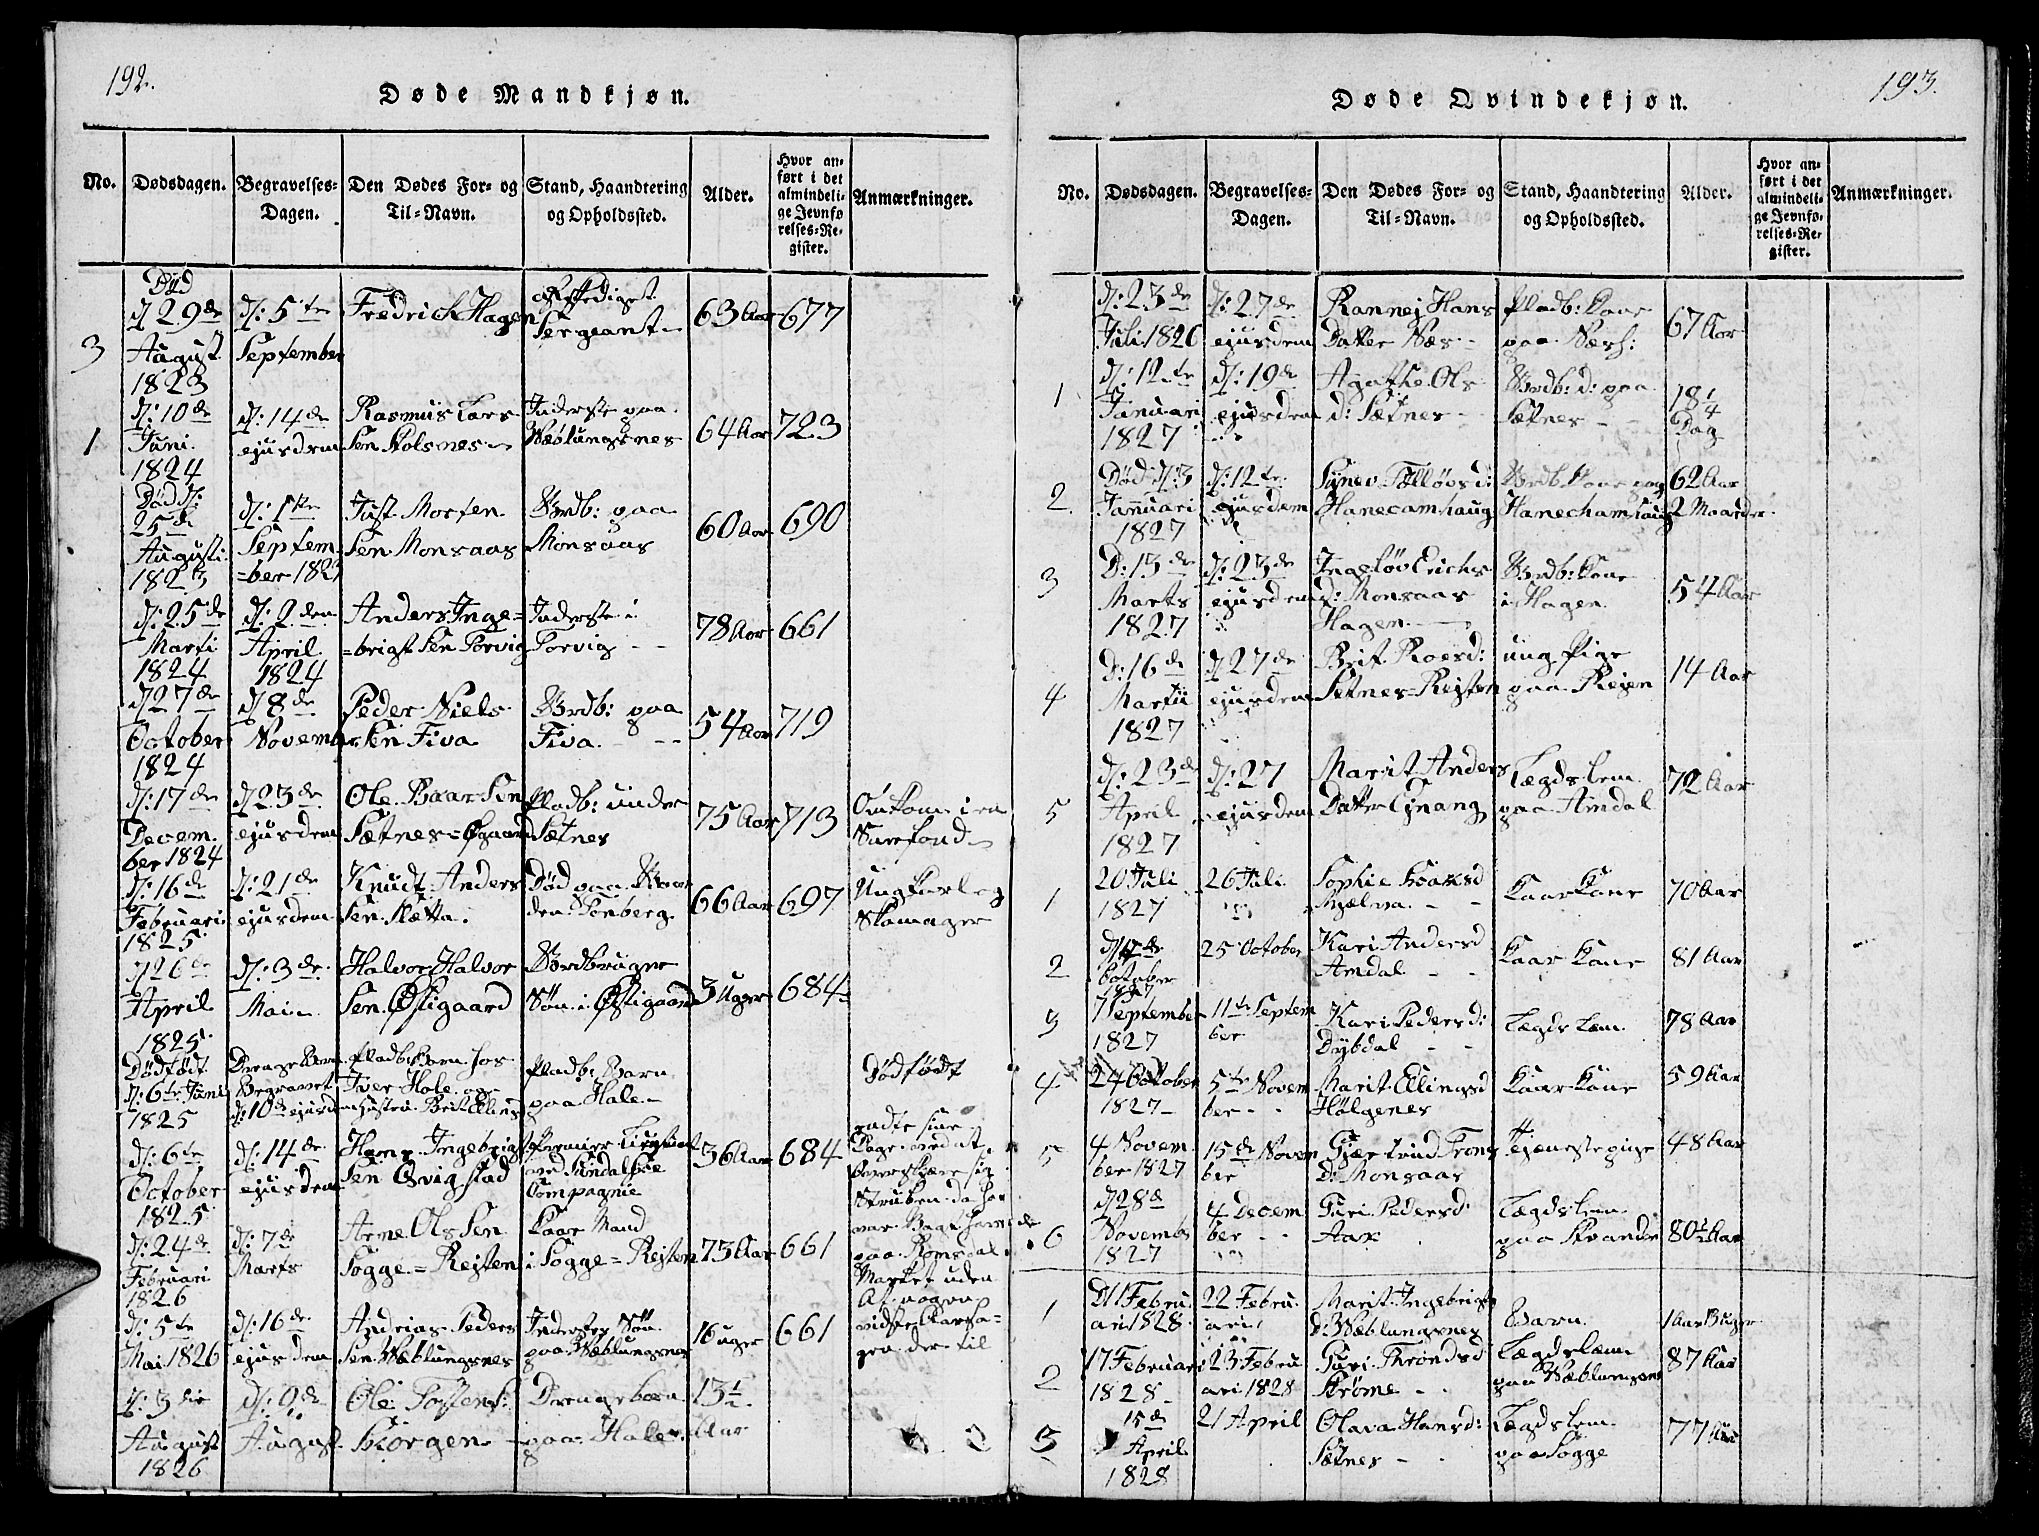 192.
Døde Mandkjøn.
No. Dødsdagen. Begravelses-Dagen. Den Dødes For- og Til-Navn. Stand, Haandtering og Opholdssted. Alder. Hvor anført i det almindelige Jevnførelses-Register. Anmærkninger.
Død
3 d 29de August 1823 d: 5te September Fredrich Hagen afskediget Sergeant 63 Aar 677
1 d: 10de Juni 1824 d: 14de ejusdem Rasmus Lars Sen Holsnes Inderste paa Wæblungsnes 64 Aar 723
Død d: 25de Augusti 1823 d: 1ste September 1823 Just Morten Sen Monsaas Brdb: paa Monsaas 60 Aar 690
d: 25de Marti 1824 d: 2den April 1824 Anders Inge=brigt Sen Torvig Inderste i Torvig 78 Aar 661
d 27de October 1824 d 8de November Peder Niels Sen Fiva Brdb: paa Fiva 54 Aar 719
d: 17de December 1824 d 23de ejusdem Ole Baar Sen Sætnes=Øgaard Pladb: under Sætnes 75 Aar 713 Omkom i en
d: 16de Februari 1825 d: 21de ejusdem Knudt Anders Sen Slætta Død paa Tonberg 66 Aar 697 Ungkarl og Skomager
d 26de April 1825 d: 3de Mai Halvor Halvor Sen Østigaard Gordbruger Søn i Østigaard 3 Uger 684
Dødfødt d: 6te Juni 1825 Drenge Barn Begravet d: 10de ejusdem Pladb: Barn hos Iver Hole og Hustru Brit Pladb: Barn paa Hole Dødfødt
d: 6te October 1825 d: 14de ejusdem Hans Ingebrigt Sen Qvigstad Premier ved Sundalske Compagnie 36 Aar 684
d: 24de Februari 1826 d: 7de Marts Arne Ols Sen Sogge=Rejsten Kaar Mand i Sogge=Rejsten 73 Aar 661
endte sine Dage ved at overskjære sig Struben da han var paa Romsdal Market uden at nogen vidste Aarsagen der til
d: 5te Mai 1826 d: 16de ejusdem Andrias Peders Sen Wæblungsnes Inderstes Søn paa Wæblungsnes 16 uger 661
d: 3die August 1826 d: 9de August Ole Torstens: Skorgen Drengebarn paa Hole 13½ Aar

193.
Døde Qvindekjøn.
No. Dødsdagen. Begravelses-Dagen. Den Dødes For- og Til-Navn. Stand, Haandtering og Opholdssted. Alder. Hvor anført i det almindelige Jevnførelses-Register. Anmærkninger.
d: 23de Juli 1826 d: 27de ejusdem Rannej Hans Datter Næs Pladb: Kone paa Næss: 67 Aar
1 d: 12te Januari 1827 d: 19de ejusdem Agathe Ols d: Sætnes Brdb: d: paa Sætnes 18¼ Dag
2 Død d: 3 Januari 1827 d: 12te ejusdem Synev Tølløvsd: Hanecamhaug Brdb Kone paa Hanechamhaug 62 Aar 2 Maaneder
3 D: 13de Marts 1827 d: 23de ejusdem Ingeløv Erichs d: Monsaas Hagen Brdb: Kone i Hagen 54 Aar
4 D: 16de Martii 1827 d 27de ejusdem Brit Roesd: Setnes=Rejsten ung Pige paa Rejen 14 Aar
5 d: 23de April 1827 d: 27 ejusdem Marit Anders Datter Unang Lægdslem paa Amdal 72 Aar
1 20 Juli 1827 26 Juli Sophie Mjelva Kaar Kone 70 Aar
2 d 17de October 1827 25 October Kari Andersd Amdal Kaar Kone 81 Aar
3 7 September 1827 11te September Kari Pedersd: Dybdal Lægdslem 78 Aar
4 24 October 1827 5te November Marit Ellingsd Hølgenes Kaar Kone 59 Aar
5 4 November 1827 15de November Gjertrud Trons d: Monsaas Tjenestepige 48 Aar
6 d 28de November 1827 4 December Guri Pedersd Aak Lægdslem paa Kvande 80½ Aar
1 d 11 Februari 1828 22 Februari Marit Ingebrigts d: Wæblungsnes Barn 1 Aar 3 Uger
2 17 Februari 1828 23 Februari 1828 Guri Throndsd Strøme Lægdslem paa Wæblungsnes 87 Aar
3 15de April 1828 21 April Olava Hansd: Sætnes Lægdslem paa Sogge 77 Aar